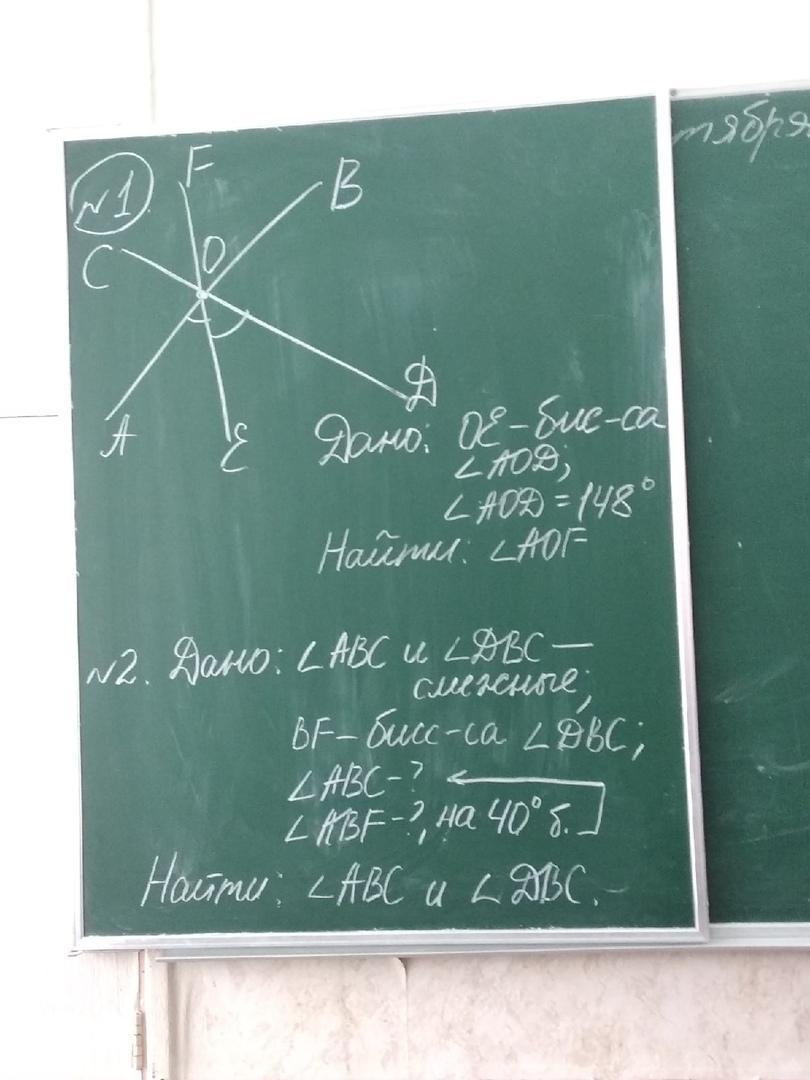 №1
F
B
C
O
A
E
D
Дано: OE - бис-са
∠AOD;
∠AOD = 148°
Найти: ∠AOF
№2. Дано: ∠ABC и ∠DBC —
смежные;
BF - бисс-са ∠DBC;
∠ABC - ?
∠ABF - ?, на 40° б.
Найти: ∠ABC и ∠DBC.
тября